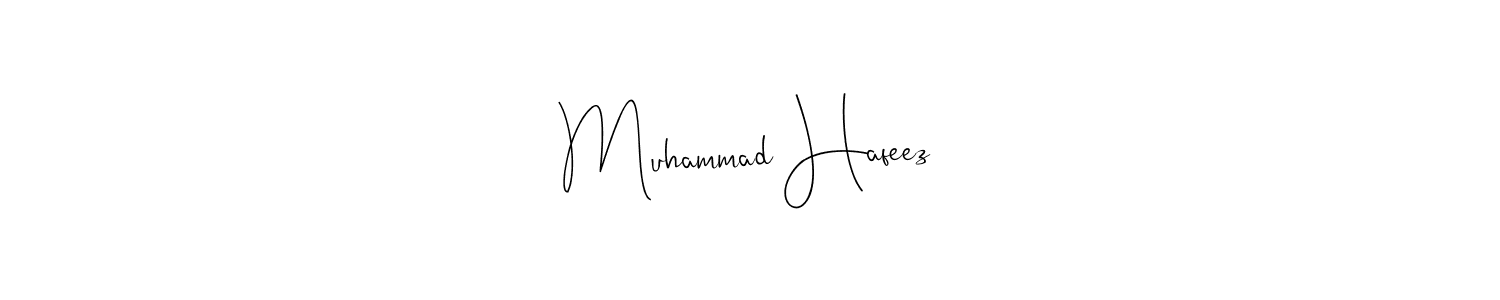 Muhammad Hafeez